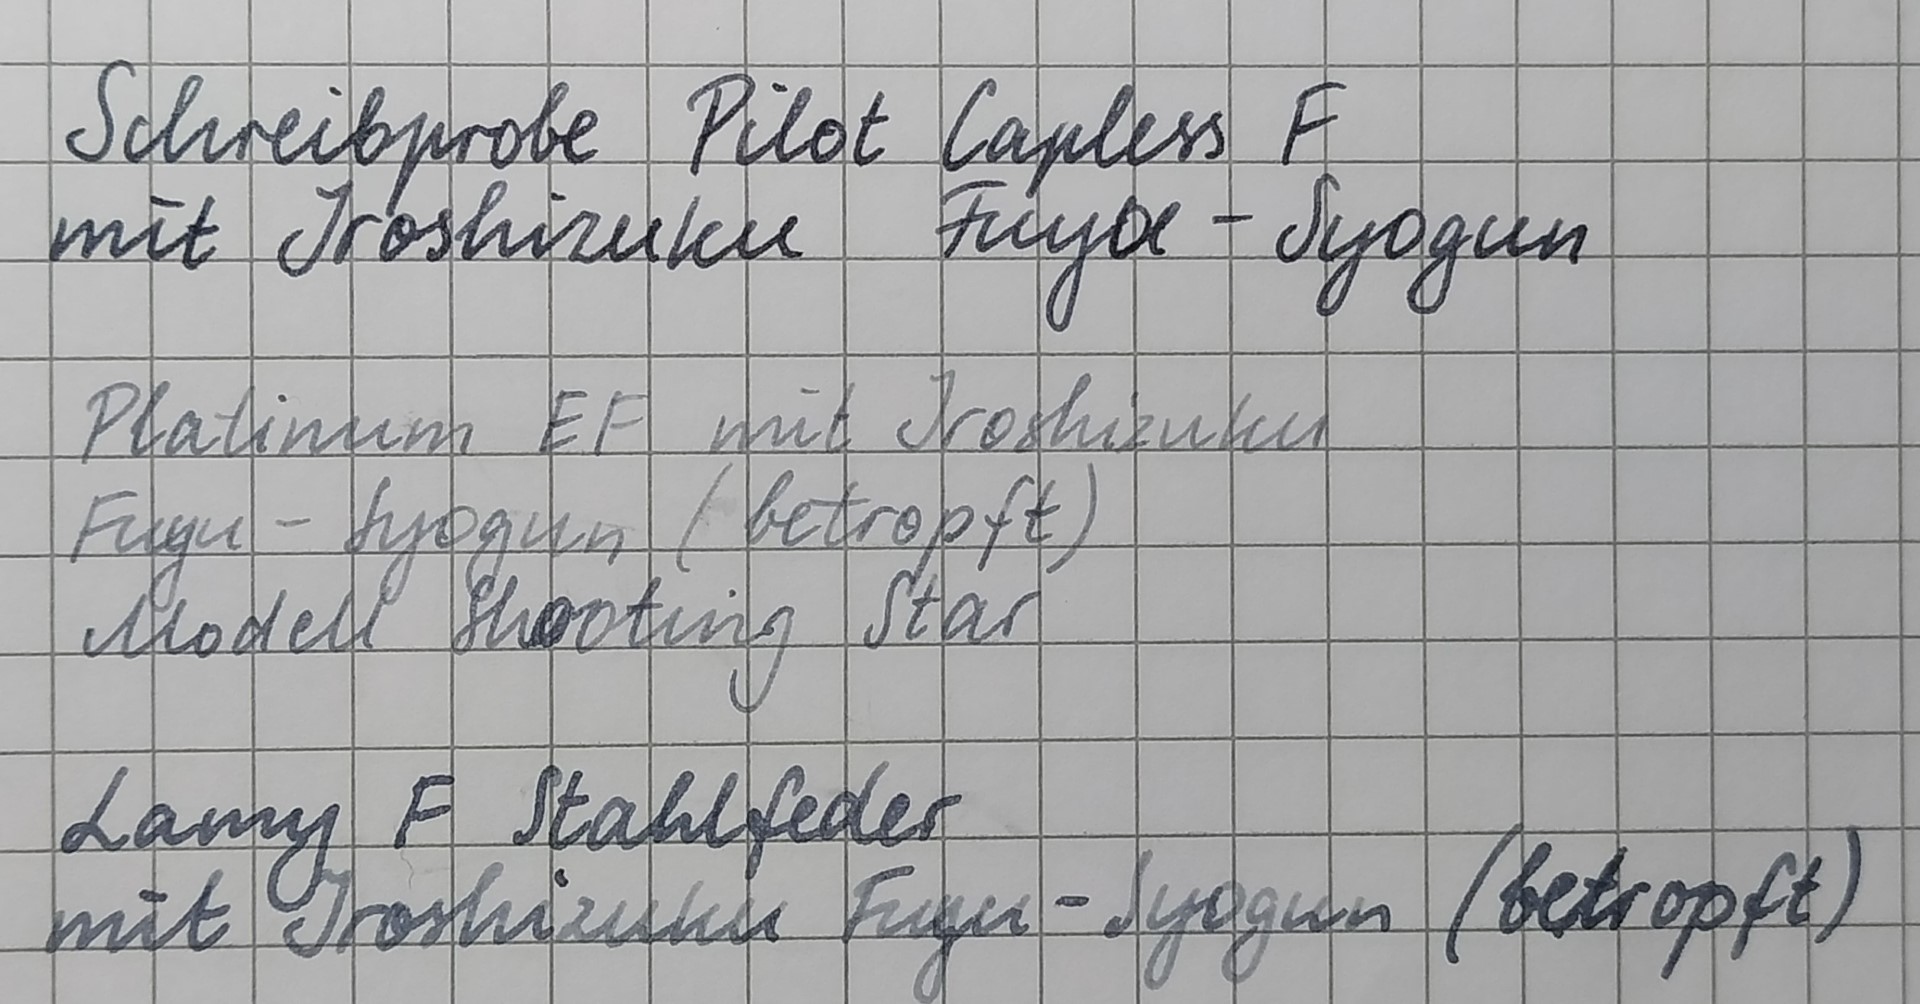 Schreibprobe Pilot Capless F
mit Iroshizuku Fuyu - Syogun
Platinum EF mit Iroshizuku
Fuyu - Syogun (betropft)
Modell Shooting Star
Lamy F Stahlfeder
mit Iroshizuku Fuyu - Syogun (betropft)